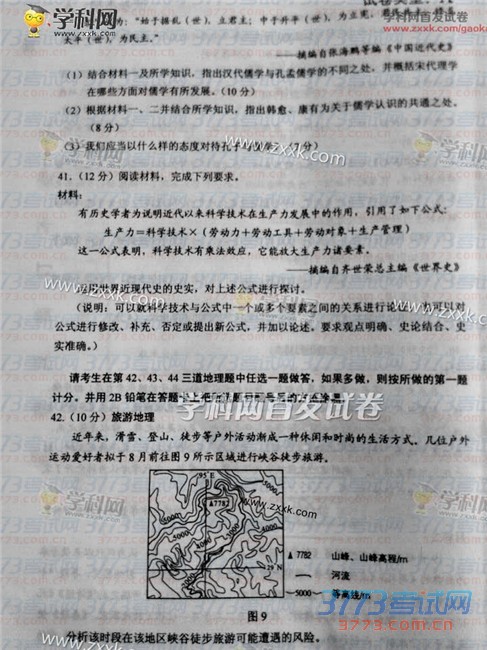 为："始于据乱（世），立君主；中于升平（世），为立宪，
太平（世），为民主。"
——摘编自张海鹏等编《中国近代史》
（1）结合材料一及所学知识，指出汉代儒学与孔孟儒学的不同之处，并概括宋代理学
在哪些方面对儒学有所发展。（10 分）
（2）根据材料一、二并结合所学知识，指出韩愈、康有为关于儒学认识的共通之处。
（8 分）
（3）我们应当以什么样的态度对待孔子与
41.（12 分）阅读材料，完成下列要求。
材料：
有历史学者为说明近代以来科学技术在生产力发展中的作用，引用了如下公式：
生产力＝科学技术×（劳动力＋劳动工具＋劳动对象＋生产管理）
这一公式表明，科学技术有乘法效应，它能放大生产力诸要素。
——摘编自齐世荣总主编《世界史》
运用世界近现代史的史实，对上述公式进行探讨。
（说明：可以就科学技术与公式中一个或多个要素之间的关系进行论证，也可以对
公式进行修改、补充、否定或提出新公式，并加以论述。要求观点明确、史论结合、史
实准确。）
请考生在第 42、43、44 三道地理题中任选一题做答，如果多做，则按所做的第一题
计分。并用 2B 铅笔在答题卡上把所选题目
42.（10 分）旅游地理
近年来，滑雪、登山、徒步等户外活动渐成一种休闲和时尚的生活方式。几位户外
运动爱好者拟于 8 月前往图 9 所示区域进行峡谷徒步旅游。
95°E
5000
▲7782
5000
29°N
▲ 7782 山峰、山峰高程/m
河流
5000 等高线/m
图 9
分析该时段在该地区峡谷徒步旅游可能遭遇的风险。
学科网
www.zxxk.com
学科网首发试卷
3773考试网
3773.com.cn